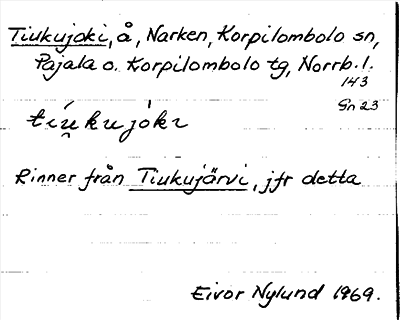 Tiukujoki, å, Narken, Korpilombolo sn,
Pajala o. Korpilombolo tg, Norrb. l.
143
Gn 23
tíu̯kujòkı
Rinner från Tiukujärvi, jfr detta
Eivor Nylund 1969.